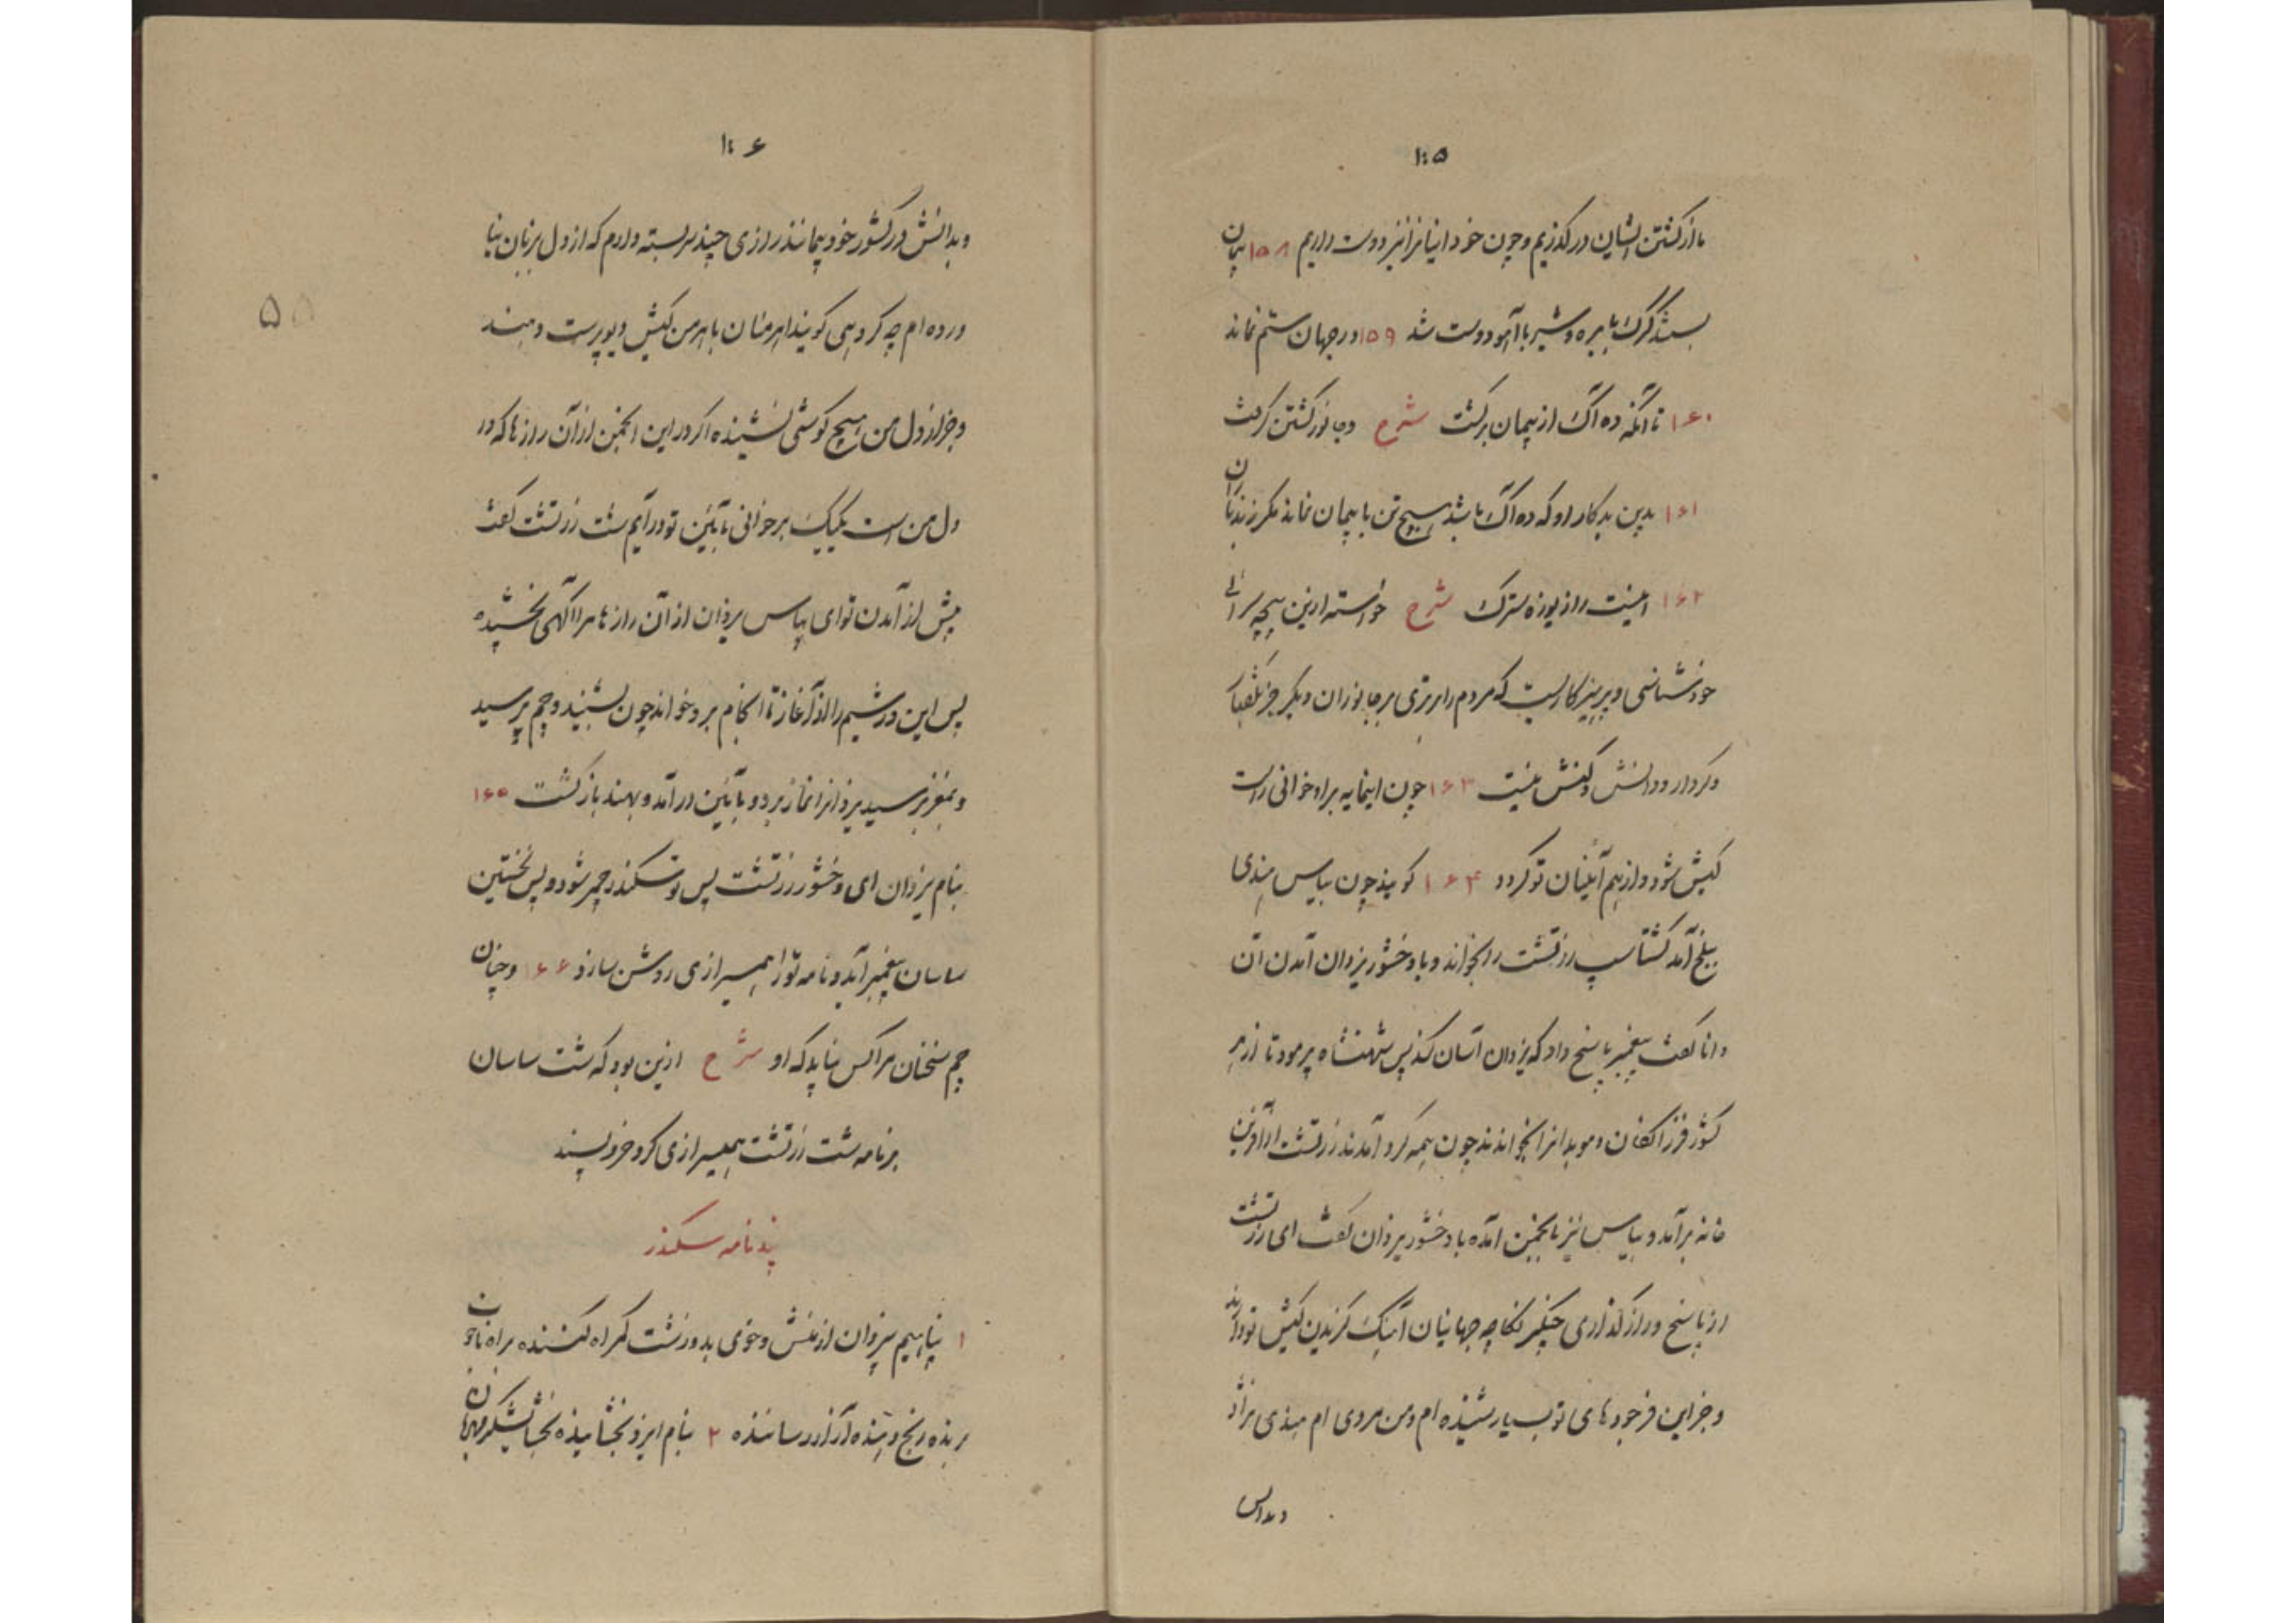 ۱۰۵
ما از کشتن ایشان درگذریم و چون خود اینانرا نیز دوست داریم ۱۵۸ پیمان
بستند گرگ با بره و شیر با آهو دوست شد ۱۵۹ و در جهان ستم نماند
۱۶۰ تا آنکه ده آک از پیمان برگشت شرح و جانور کشتن گرفت
۱۶۱ بدین بدکار او که ده آک باشد هیچ تن با پیمان نماند مگر زندباران
۱۶۲ اینست راز پوزه سترک شرح خواسته ازین بیچه سرائی
خودشناسی و پرهیزکاریست که مردم را برتری بر جانوران دیگر جز بگفتار
و کردار و دانش و کنش نیست ۱۶۳ چون اینمایه براه خوانی راست
کیش شود و از هم آئینان تو گردد ۱۶۴ گویند چون بیاس هندی
ببلخ آمد گشتاسپ زرتشت را بخواند و با وخشور یزدان آمدن آن
دانا گفت پیغمبر پاسخ داد که یزدان آسان کند پس شهنشاه پرمود تا از هر
کشور فرزانگان و موبدانرا بخوانند چون همه گرد آمدند زرتشت از آفرین
خانه برآمد و بیاس نیز بانجمن آمده با وخشور یزدان گفت ای زرتشت
از پاسخ و راز گذاری چنگرنگاچه جهانیان آهنگ گزیدن کیش تو دارند
و جز این فرجودهای تو بسیار شنیده ام و من مردی ام هندی نژاد
و بدانس
۱۰۶
و بدانش در کشور خود بیمانند رازی چند سربسته دارم که از دل بزبان نیا
ورده ام چه گروهی گویند اهرمنان باهرمن کیش دیوپرست دهند
و جز از دل من هیچ گوشی نشنیده اگر در این انجمن از آن رازها که در
دل من است یکیک برخوانی بآئین تو درآیم شت زرتشت گفت
پیش از آمدن تو ای بیاس یزدان از آن رازها مرا آگهی بخشیده
پس این ورشیم را از آغاز تا انجام برو خواند چون بشنید و چم پرسید
و بمغز برسید یزدانرا نماز برد و بآئین درآمد و بهند بازگشت ۱۶۵
بنام یزدان ای وخشور زرتشت پس تو سکندر چمر شود و پس نخستین
ساسان پیغمبر آید و نامه تو را همیرازی روشن سازد ۱۶۶ و چنان
چم سخنان مرا کس نیابد که او شرح ازین بود که شت ساسان
برنامه شت زرتشت همیرازی کرد خردپسند
پندنامه سکندر
۱ پناهیم بیزدان از منش و خوی بد و زشت گمراه کننده براه ناخوب
برنده رنج دهنده آزار رساننده ۲ بنام ایزد بخشاینده بخشایشگر مهربان
۵۵